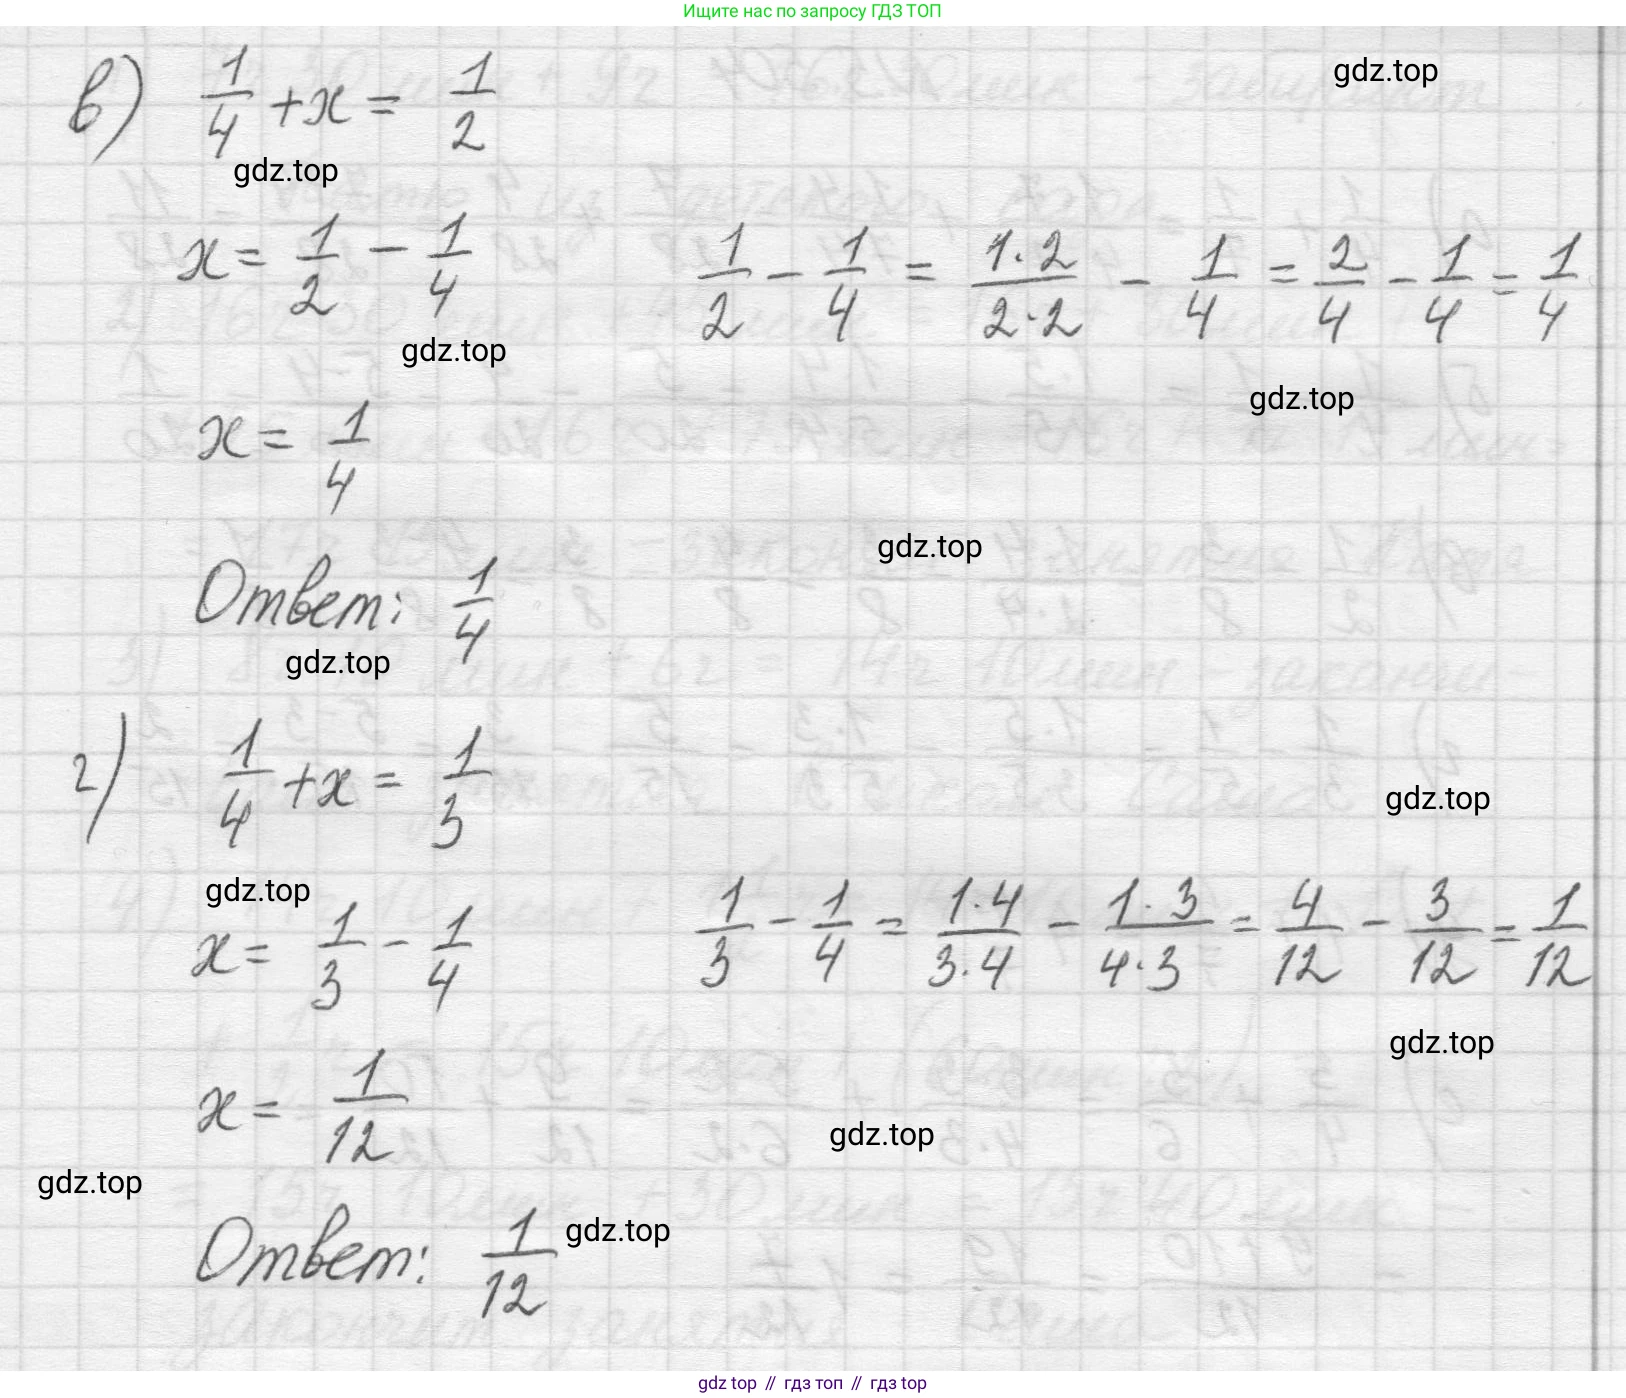 Ищите нас по запросу ГДЗ ТОП
gdz.top
в) 1/4 + x = 1/2
gdz.top
x = 1/2 - 1/4    1/2 - 1/4 = 1·2/2·2 - 1/4 = 2/4 - 1/4 = 1/4
gdz.top
gdz.top
x = 1/4
gdz.top
Ответ: 1/4
gdz.top
г) 1/4 + x = 1/3
gdz.top
gdz.top
x = 1/3 - 1/4    1/3 - 1/4 = 1·4/3·4 - 1·3/4·3 = 4/12 - 3/12 = 1/12
gdz.top
x = 1/12
gdz.top
gdz.top
Ответ: 1/12
gdz.top
gdz top // гдз топ // гдз top